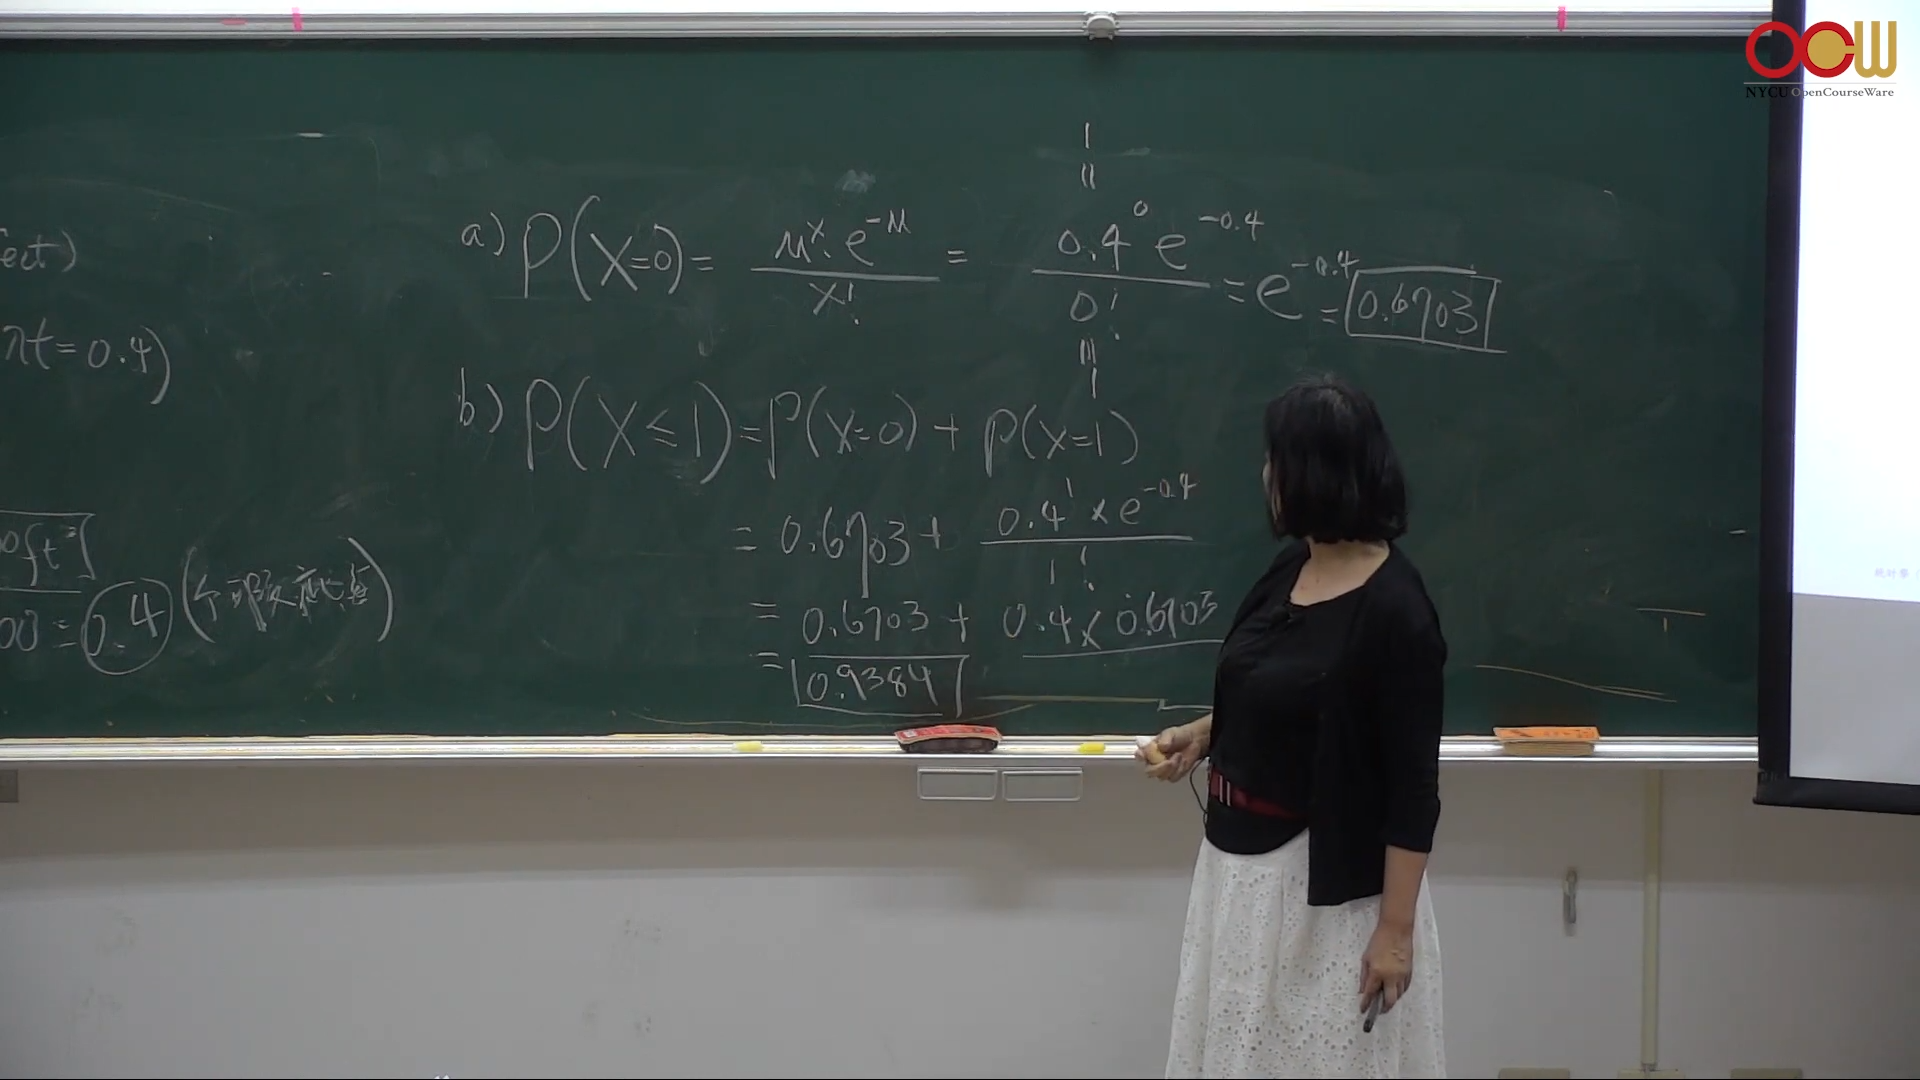 OCW
NYCU OpenCourseWare
fect)
λt = 0.4)
0ft²
00 = 0.4 (个
1
=
a) P(X=0) = μˣ·e^-μ / x! = 0.4⁰ e^-0.4 / 0! = e^-0.4 = 0.6703
=
1
b) P(X≤1) = P(X=0) + P(X=1)
= 0.6703 + 0.4¹ × e^-0.4 / 1!
= 0.6703 + 0.4 × 0.6703
= 0.9384